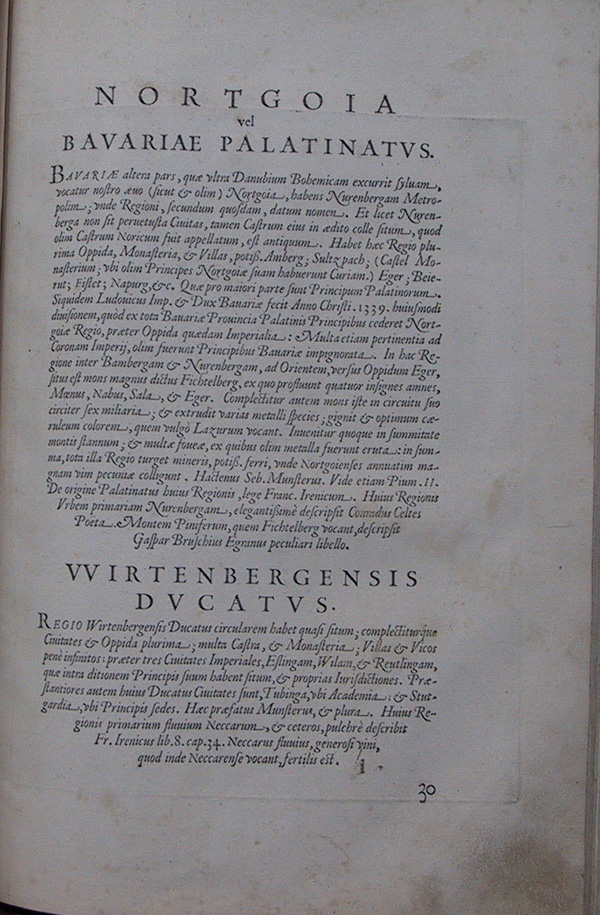 NORTGOIA
vel
BAVARIAE PALATINATVS.
BAVARIÆ altera pars, quæ vltra Danubium Bohemicam excurrit syluam,
vocatur nostro æuo (sicut & olim) Nortgoia, habens Nurenbergam Metro-
polim; vnde Regioni, secundum quosdam, datum nomen. Et licet Nuren-
berga non sit peruetusta Ciuitas, tamen Castrum eius in ædito colle situm, quod
olim Castrum Noricum fuit appellatum, est antiquum. Habet hæc Regio plu-
rima Oppida, Monasteria, & Villas, potiss. Amberg; Sultzpach; (Castel Mo-
nasterium; vbi olim Principes Nortgoiæ suam habuerunt Curiam.) Eger; Beie-
rut; Eistet; Napurg, &c. Quæ pro maiori parte sunt Principum Palatinorum.
Siquidem Ludouicus Imp. & Dux Bauariæ fecit Anno Christi. 1339. huiusmodi
diuisionem, quòd ex tota Bauariæ Prouincia Palatinis Principibus cederet Nort-
goiæ Regio, præter Oppida quædam Imperialia: Multa etiam pertinentia ad
Coronam Imperij, olim fuerunt Principibus Bauariæ impignorata. In hac Re-
gione inter Bambergam & Nurenbergam, ad Orientem, versus Oppidum Eger,
situs est mons magnus dictus Fichtelberg, ex quo profluunt quatuor insignes amnes,
Mœnus, Nabus, Sala, & Eger. Complectitur autem mons iste in circuitu suo
circiter sex miliaria; & extrudit varias metalli species; gignit & optimum cæ-
ruleum colorem, quem vulgò Lazurum vocant. Inuenitur quoque in summitate
montis stannum; & multæ foueæ, ex quibus olim metalla fuerunt eruta: in sum-
ma, tota illa Regio turget mineris, potiss. ferri, vnde Nortgoienses annuatim ma-
gnam vim pecuniæ colligunt. Hactenus Seb. Munsterus. Vide etiam Pium. II.
De origine Palatinatus huius Regionis, lege Franc. Irenicum. Huius Regionis
Vrbem primariam Nurenbergam, elegantissimè descripsit Conradus Celtes
Poëta. Montem Piniferum, quem Fichtelberg vocant, descripsit
Gaspar Bruschius Egranus peculiari libello.
VVIRTENBERGENSIS
DVCATVS.
REGIO Wirtenbergensis Ducatus circularem habet quasi situm; complectiturque
Ciuitates & Oppida plurima; multa Castra, & Monasteria; Villas & Vicos
penè infinitos: præter tres Ciuitates Imperiales, Eslingam, Wilam, & Reutlingam,
quæ intra ditionem Principis suum habent situm, & proprias Iurisdictiones. Præ-
stantiores autem huius Ducatus Ciuitates sunt, Tubinga, vbi Academia: & Stut-
gardia, vbi Principis sedes. Hæc præfatus Munsterus, & plura. Huius Re-
gionis primarium fluuium Neccarum, & ceteros, pulchrè describit
Fr. Irenicus lib. 8. cap. 34. Neccarus fluuius, generosi vini,
quod inde Neccarense vocant, fertilis est.
30